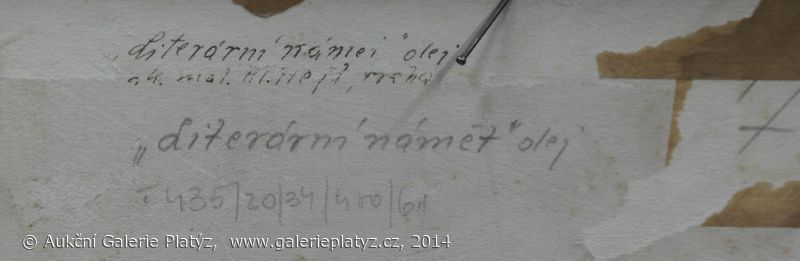 „Literární námět" olej
ak. mal. Praha
„Literární námět" olej
435/20/34/400/61
© Aukční Galerie Platýz, www.galerieplatyz.cz, 2014